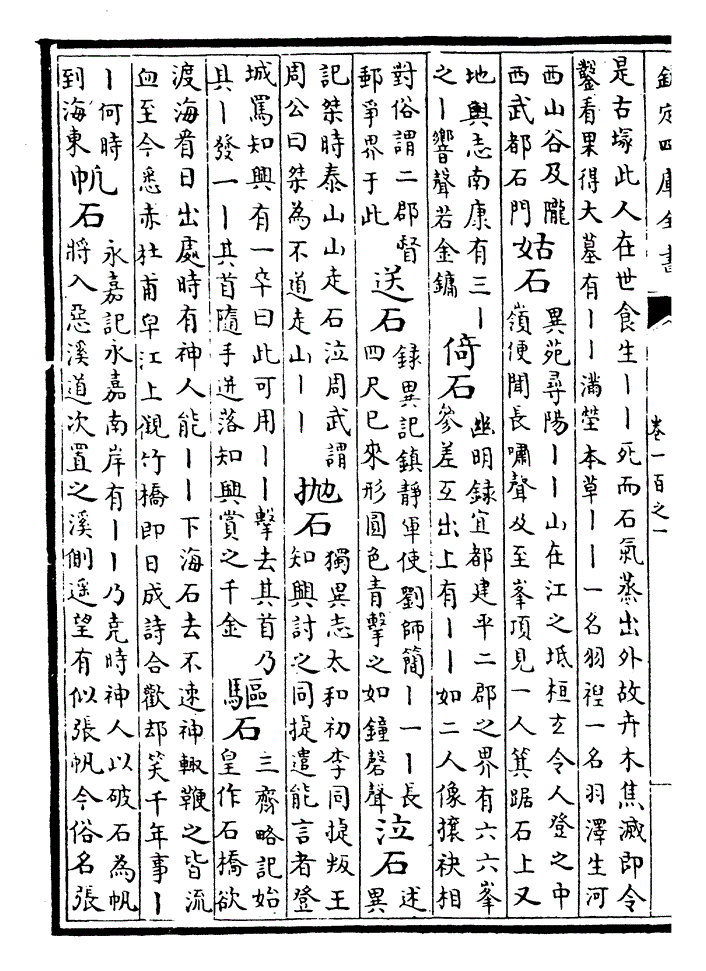 欽定四庫全書
卷一百之一
是古塚此人在世食生丨丨死而石氣蒸出外故卉木焦滅即令
鑿看果得大墓有丨丨滿塋本草丨丨一名羽一名羽澤生河
西山谷及隴
西武都石門
姑石
異苑尋陽丨丨山在江之坻桓玄令人登之中
嶺便聞長嘯聲及至峯項見一人箕踞石上又
地輿志南康有三丨
之丨響聲若金鏞
倚石
幽明録宜都建平二郡之界有六六峯
參差互出上有丨丨如二人像攘袂相
對俗謂二郡督
郵爭界于此
送石
録異記鎮靜軍使劉師簡丨一丨長
四尺已來形圓色青擊之如鐘磬聲
泣石
述
異
記桀時泰山山走石泣周武謂
周公曰桀為不道走山丨丨
拋石
獨異志太和初李同捷叛王
知興討之同捷遣能言者登
城罵知興有一卒曰此可用丨丨擊去其首乃
其丨發一丨其首隨手迸落知興賞之千金
驅石
三齊略記始
皇作石橋欲
渡海看日出處時有神人能丨丨下海石去不速神輒鞭之皆流
血至今悉赤杜甫皁江上觀竹橋即日成詩合歡却笑千年事丨
丨何時
到海東
帆石
永嘉記永嘉南岸有丨丨乃堯時神人以破石為帆
將入惡溪道次置之溪側遥望有似張帆今俗名張